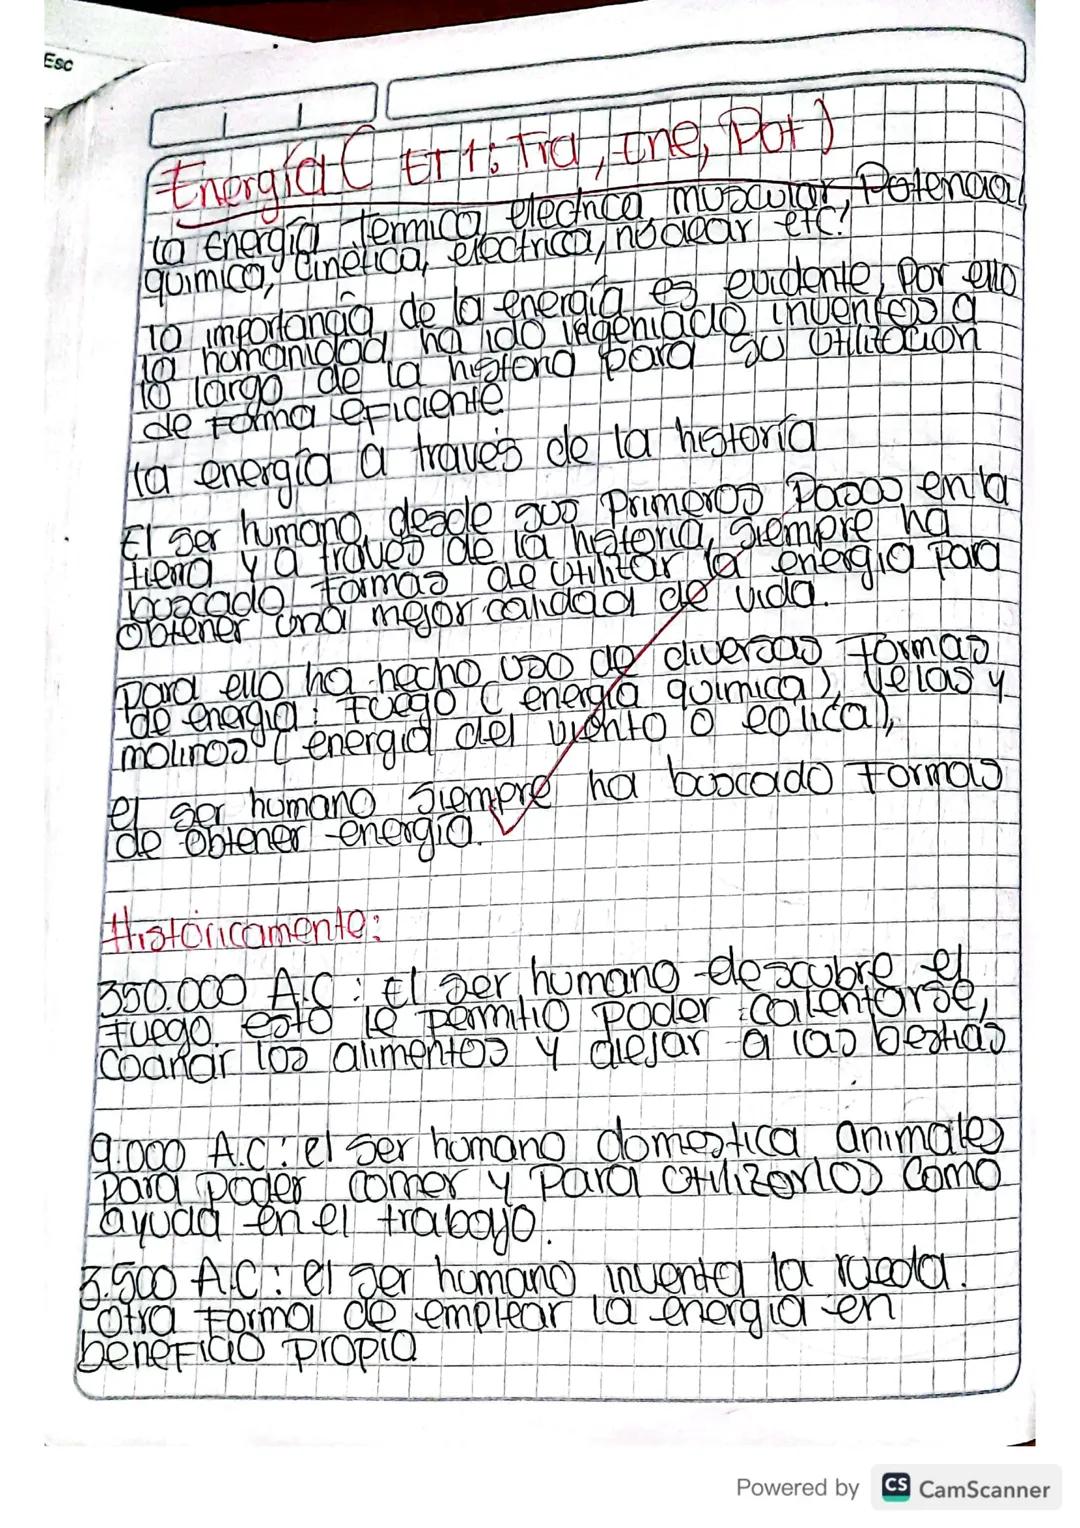 Esc
Energía ( ET1: Tra, Ene, Pot )
la energía Termica, electrica, muscular, Potencial,
quimica, cinética, electrica, nuclear etc!
la importancia de la energía es evidente, Por ello
la humanidad ha ido ingeniado inventos a
lo largo de la historia para su utilización
de Forma eFiciente
la energía a través de la historía
El ser humano, desde sus Primeros Pasos en la
tierra y a través de la historia, siempre ha
buscado formas de utilizar la energía para
obtener una mejor calidad de vida.
para ello ha hecho uso de diversas Formas
de energía: Fuego ( energía quimica), velas y
molinos ( energía del viento o eolica),
el ser humano siempre ha buscado Formas
de obtener energía.
Históricamente:
350.000 A.C: El ser humano descubre el
Fuego. esto le permitio poder calentarse,
Cocinar los alimentos y alejar a las bestias
9.000 A.C: el ser humano domestica animales
para poder comer y para utilizarlos como
ayuda en el trabajo.
3.500 A.C: el ser humano inventa la rueda.
otra Forma de emplear la energía en
beneFicio propio
Powered by CS CamScanner